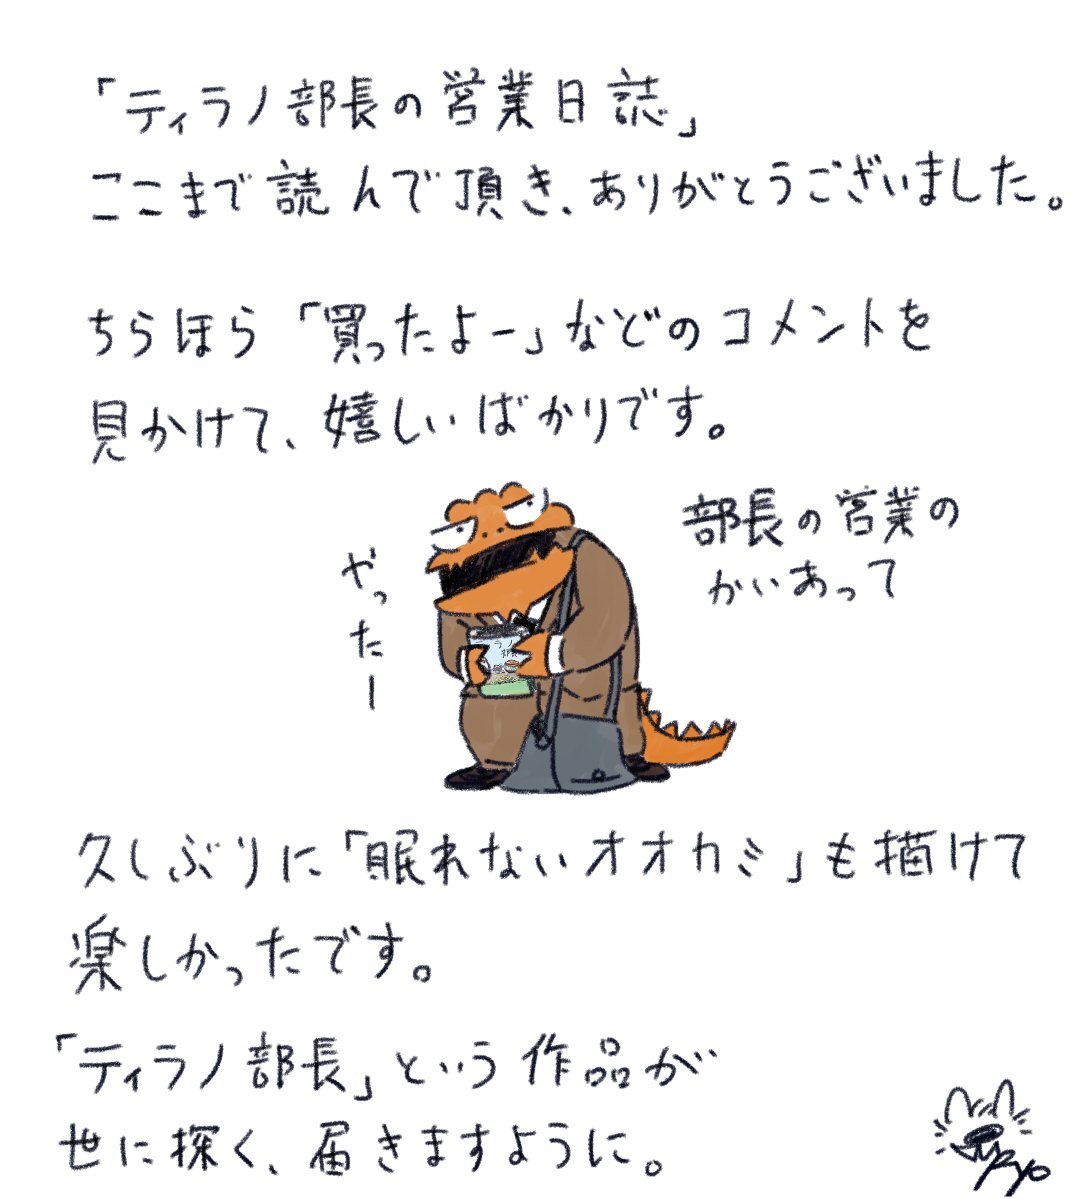 「ティラノ部長の営業日誌」
ここまで読んで頂き、ありがとうございました。
ちらほら「買ったよー」などのコメントを
見かけて、嬉しいばかりです。
部長の営業の
かいあって
やったー
久しぶりに「眠れないオオカミ」も描けて
楽しかったです。
「ティラノ部長」という作品が
世に探く、届きますように。